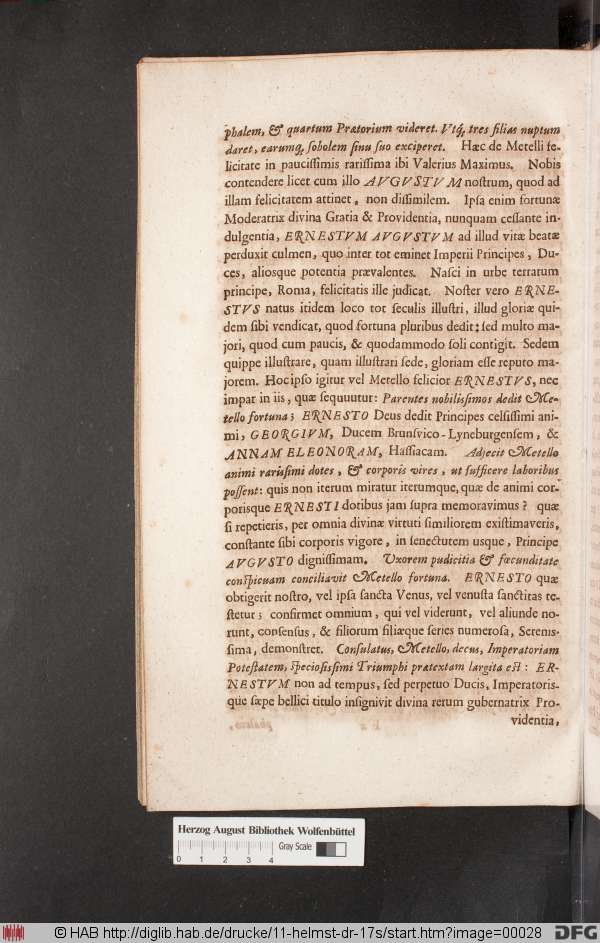 phalem, & quartum Prætorium videret. Utq́; tres filias nuptum
daret, earumq́; sobolem sinu suo exciperet. Hæc de Metelli fe-
licitate in paucissimis rarissima ibi Valerius Maximus. Nobis
contendere licet cum illo AVGVSTVM nostrum, quod ad
illam felicitatem attinet, non dissimilem. Ipsa enim fortunæ
Moderatrix divina Gratia & Providentia, nunquam cessante in-
dulgentia, ERNESTVM AVGVSTVM ad illud vitæ beatæ
perduxit culmen, quo inter tot eminet Imperii Principes, Du-
ces, aliosque potentia prævalentes. Nasci in urbe terrarum
principe, Roma, felicitatis ille judicat. Noster vero ERNE-
STVS natus itidem loco tot seculis illustri, illud gloriæ qui-
dem sibi vendicat, quod fortuna pluribus dedit; sed multo ma-
jori, quod cum paucis, & quodammodo soli contigit. Sedem
quippe illustrare, quam illustrari sede, gloriam esse reputo ma-
jorem. Hoc ipso igitur vel Metello felicior ERNESTVS, nec
impar in iis, quæ sequuutur: Parentes nobilissimos dedit Me-
tello fortuna; ERNESTO Deus dedit Principes celsissimi ani-
mi, GEORGIVM, Ducem Brunsvico-Lyneburgensem, &
ANNAM ELEONORAM, Hassiacam. Adjecit Metello
animi rarissimi dotes, & corporis vires, ut sufficere laboribus
possent: quis non iterum miratur iterumque, quæ de animi cor-
porisque ERNESTI dotibus jam supra memoravimus? quæ
si repetieris, per omnia divinæ virtuti similiorem existimaveris,
constante sibi corporis vigore, in senectutem usque, Principe
AVGVSTO dignissimam. Uxorem pudicitia & fœcunditate
conspicuam conciliavit Metello fortuna. ERNESTO quæ
obtigerit nostro, vel ipsa sancta Venus, vel venusta sanctitas te-
stetur; confirmet omnium, qui vel viderunt, vel aliunde no-
runt, consensus, & filiorum filiæque series numerosa, Serenis-
sima, demonstret. Consulatus, Metello, decus, Imperatoriam
Potestatem, speciosissimi Triumphi prætextam largita est: ER-
NESTVM non ad tempus, sed perpetuo Ducis, Imperatoris-
que sæpe bellici titulo insignivit divina rerum gubernatrix Pro-
videntia,
Herzog August Bibliothek Wolfenbüttel
0 1 2 3 4 Gray Scale
© HAB http://diglib.hab.de/drucke/11-helmst-dr-17s/start.htm?image=00028
DFG